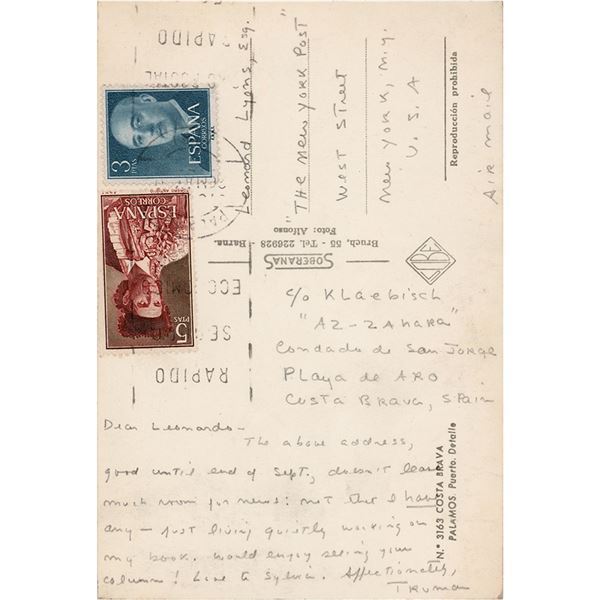 RAPIDO
3
PTAS
ESPAÑA
CORREOS
ESPAÑA
CORREOS
5
PTAS
SE
RAPIDO
Leonard Lyons, Esq.
"THE NEW YORK POST"
WEST STREET
NEW YORK, N.Y.
U.S.A
Air mail
Reproducción prohibida
Bruch, 55 - Tel. 226928 - Barna.
Foto: Alfonso
SOBERANAS
c/o Klaebisch
"AZ-ZAHARA"
Condado de San Jorge
Playa de ARO
Costa Brava, Spain
Dear Leonardo-
The above address,
good until end of Sept., doesn't leave
much room for news: not that I have
any - just living quietly working on
my book. Would enjoy seeing your
column! Love to Sylvia. Affectionately,
Truman
N.º 3163 COSTA BRAVA
PALAMOS. Puerto. Detalle